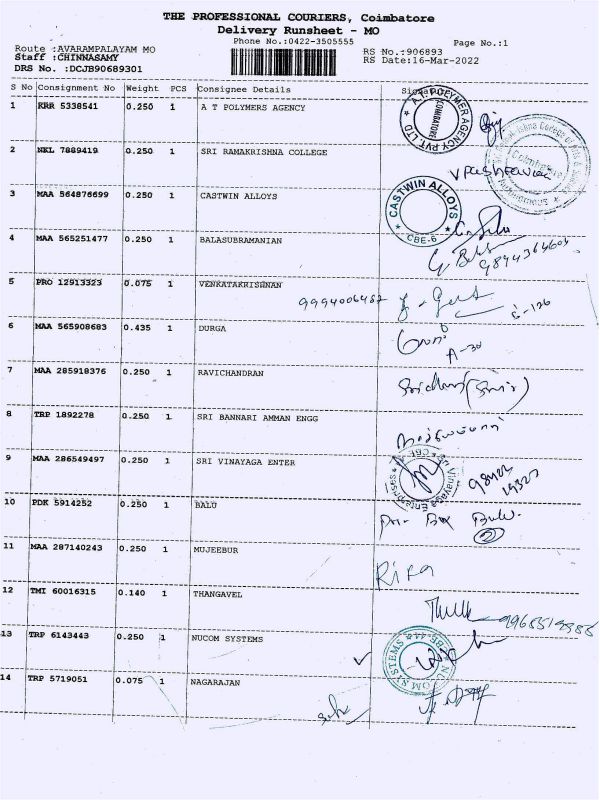 THE PROFESSIONAL COURIERS, Coimbatore
Delivery Runsheet - MO
Phone No.:0422-3505555
Page No.:1
Route :AVARAMPALAYAM MO
RS No.:906893
Staff :CHINNASAMY
RS Date:16-Mar-2022
DRS No. :DCJB90689301
S No Consignment No Weight PCS Consignee Details Signature
1 KRR 5338541 0.250 1 A T POLYMERS AGENCY
2 NKL 7889419 0.250 1 SRI RAMAKRISHNA COLLEGE
3 MAA 564876699 0.250 1 CASTWIN ALLOYS CASTWIN ALLOYS CBE-6
4 MAA 565251477 0.250 1 BALASUBRAMANIAN
5 PRO 12913323 0.075 1 VENKATAKRISHNAN
6 MAA 565908683 0.435 1 DURGA A-30
7 MAA 285918376 0.250 1 RAVICHANDRAN
8 TRP 1892278 0.250 1 SRI BANNARI AMMAN ENGG
9 MAA 286549497 0.250 1 SRI VINAYAGA ENTER Sri Vinayaga Enterprises
10 PDK 5914252 0.250 1 BALU
11 MAA 287140243 0.250 1 MUJEEBUR
12 TMI 60016315 0.140 1 THANGAVEL
13 TRP 6143443 0.250 1 NUCOM SYSTEMS NUCOM SYSTEMS
14 TRP 5719051 0.075 1 NAGARAJAN